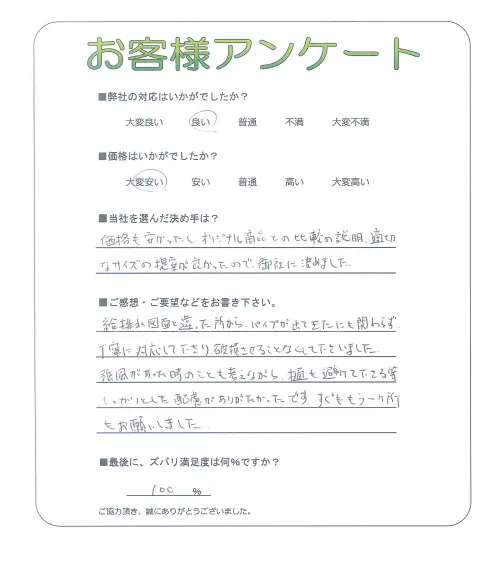 お客様アンケート
■弊社の対応はいかがでしたか？
大変良い 良い 普通 不満 大変不満
■価格はいかがでしたか？
大変安い 安い 普通 高い 大変高い
■当社を選んだ決め手は？
価格も安かったし、オリジナル商品との比較の説明、適切
なサイズの提案が良かったので、御社に決めました
■ご感想・ご要望などをお書き下さい。
給排水図面と違った所から、パイプが出てきたにも関わらず、
丁寧に対応して下さり破損させることなくして下さいました。
強風があった時のことも考えながら、植も避けて下さる等
しっかりとした配慮がありがたかったです すぐにもう一ヶ所
もお願いしました。
■最後に、ズバリ満足度は何％ですか？
100 ％
ご協力頂き、誠にありがとうございました。